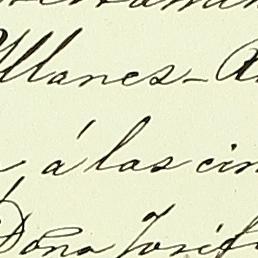 Illanes-
á las cin
Doña Josef